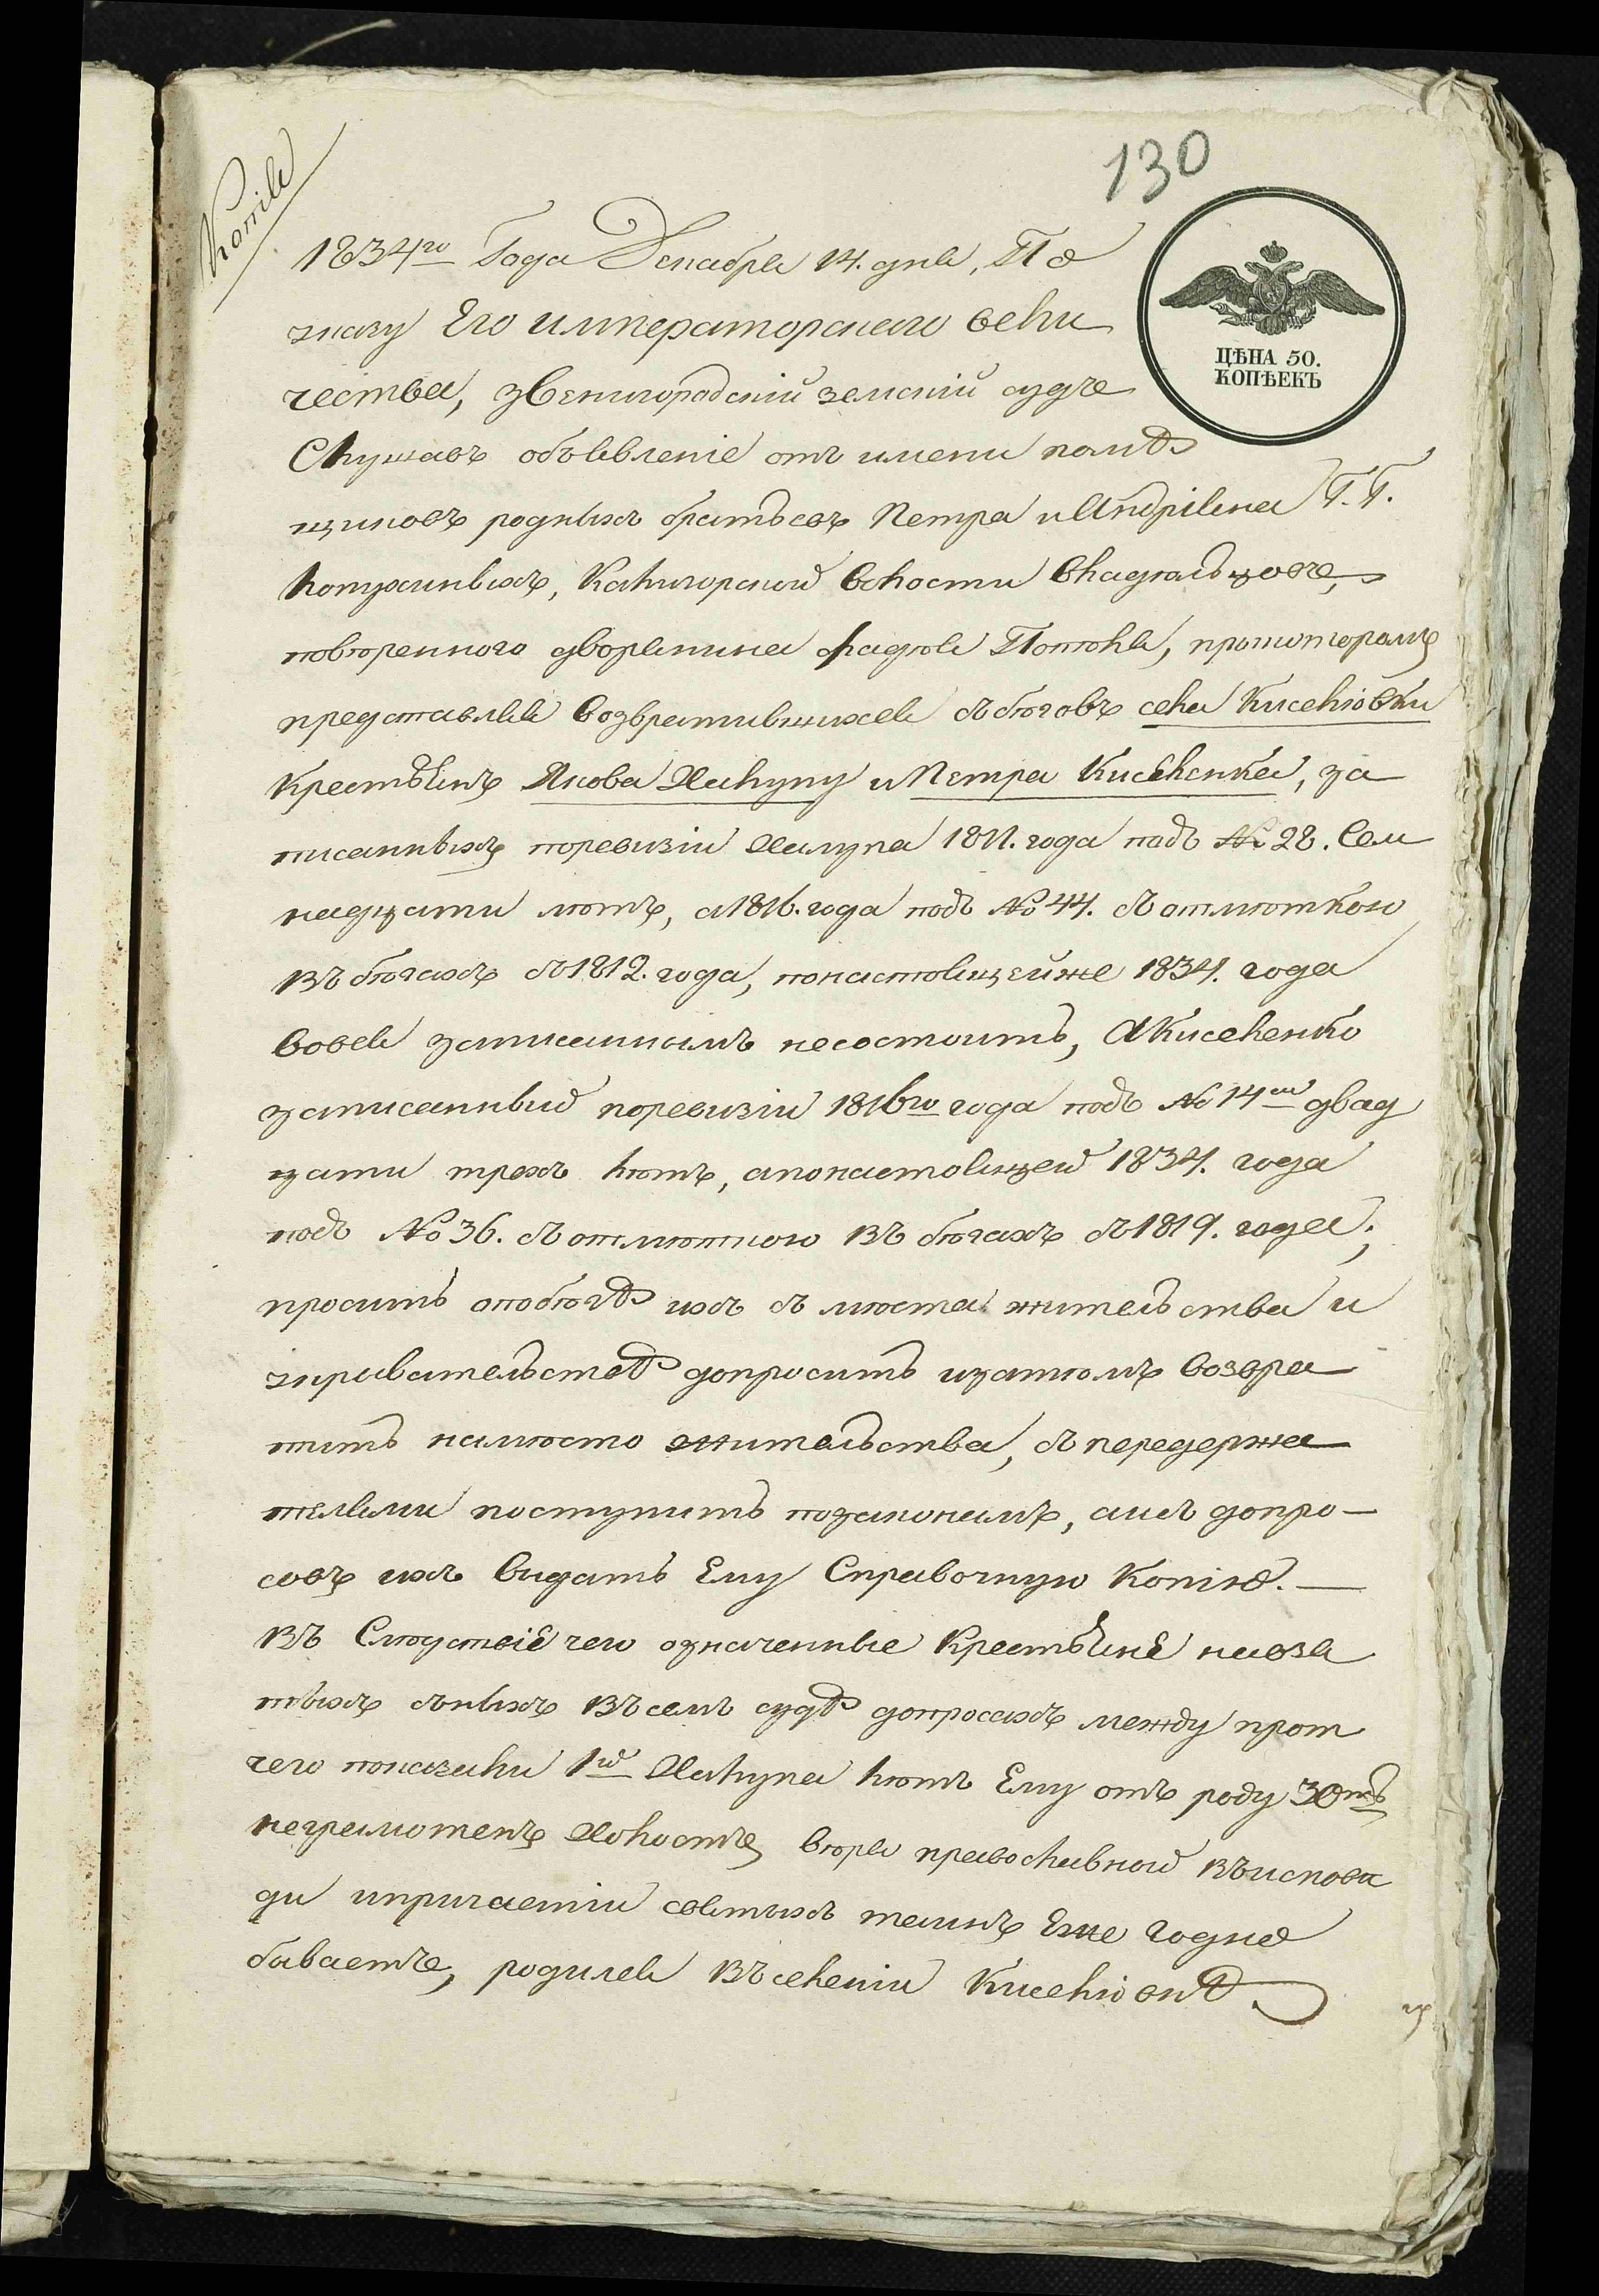 Копія
130
ЦѢНА 50.
КОПѢЕКЪ
1834го Года Декабря 14. дня, По
указу Его императорскаго вели
чества, звенигородскій земскій судъ
Слушавъ объявленіе отъ имени помѣ
щиковъ родныхъ братьевъ Петра и Андріяна Г.Г.
Лопухиныхъ, Калигорской волости владѣльцовъ,
повѣренного дворянина Фадѣя Потокля, прикоторомъ
представляя возвратившихся сбѣговъ села Киселіовки
Крестьянъ Якова Халупу и Петра Киселенка, за
писанныхъ поревизіи Халупа 1811. года подъ № 28. Сем
надцати лѣтъ, а1816. года подъ № 44. сотмѣткою
въ бѣгахъ съ1812. года, понастоящейже 1834. года
вовся записаннымъ несостоитъ, АКиселенко
записанный поревизіи 1816го года подъ № 14мъ двад
цати трехъ лѣтъ, апонастоящей 1834. года
подъ № 36. сотмѣткою въ бѣгахъ съ1819. года;
проситъ опобѣгѣ ихъ съ мѣста жительства и
укривательствѣ допросить изатѣмъ возвра
тить намѣсто жительства, съ передержа
телями поступить позаконамъ, а съ допро-
совъ ихъ видать Ему Справочную Копію. —
Въ Слѣдствіе чего означенные Крестьяне навзя
тыхъ съныхъ Въ семъ судѣ допросахъ между прот
чего показали 1й Халупа лѣтъ Ему отъ роду 30ть
неграмотенъ Холостъ вѣры православной въисповѣ
ди ипричастіи святыхъ таинъ Еже годно
биваетъ, родился въ селеніи Киселіовкѣ